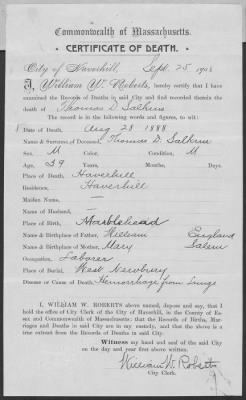 Commonwealth of Massachusetts.
CERTIFICATE OF DEATH.
City of Haverhill, Sept. 25 190
I, William W. Roberts, hereby certify that I have
examined the Records of Deaths in said City and find recorded therein the
death of Thomas D.
The record is in the following words and figures, to wit:
Date of Death, Aug 28 1888
Name & Surname of Deceased, Thomas D.
Sex, M Color, Condition, M
Age, 39 Years, Months, Days.
Place of Death, Haverhill
Residence, Haverhill
Maiden Name, —
Name of Husband, —
Place of Birth, Marblehead
Name & Birthplace of Father, William England
Name & Birthplace of Mother, Mary Salem
Occupation, Laborer
Place of Burial, West Newbury
Disease or Cause of Death, Hemorrhage from Lungs
I, WILLIAM W. ROBERTS above named, depose and say, that I
hold the office of City Clerk of the City of Haverhill, in the County of Es-
sex and Commonwealth of Massachusetts; that the Records of Births, Mar-
riages and Deaths in said City are in my custody, and that the above is a
true extract from the Records of Deaths in said City.
Witness my hand and seal of the said City
on the day and year first above written.
William W. Roberts
City Clerk.